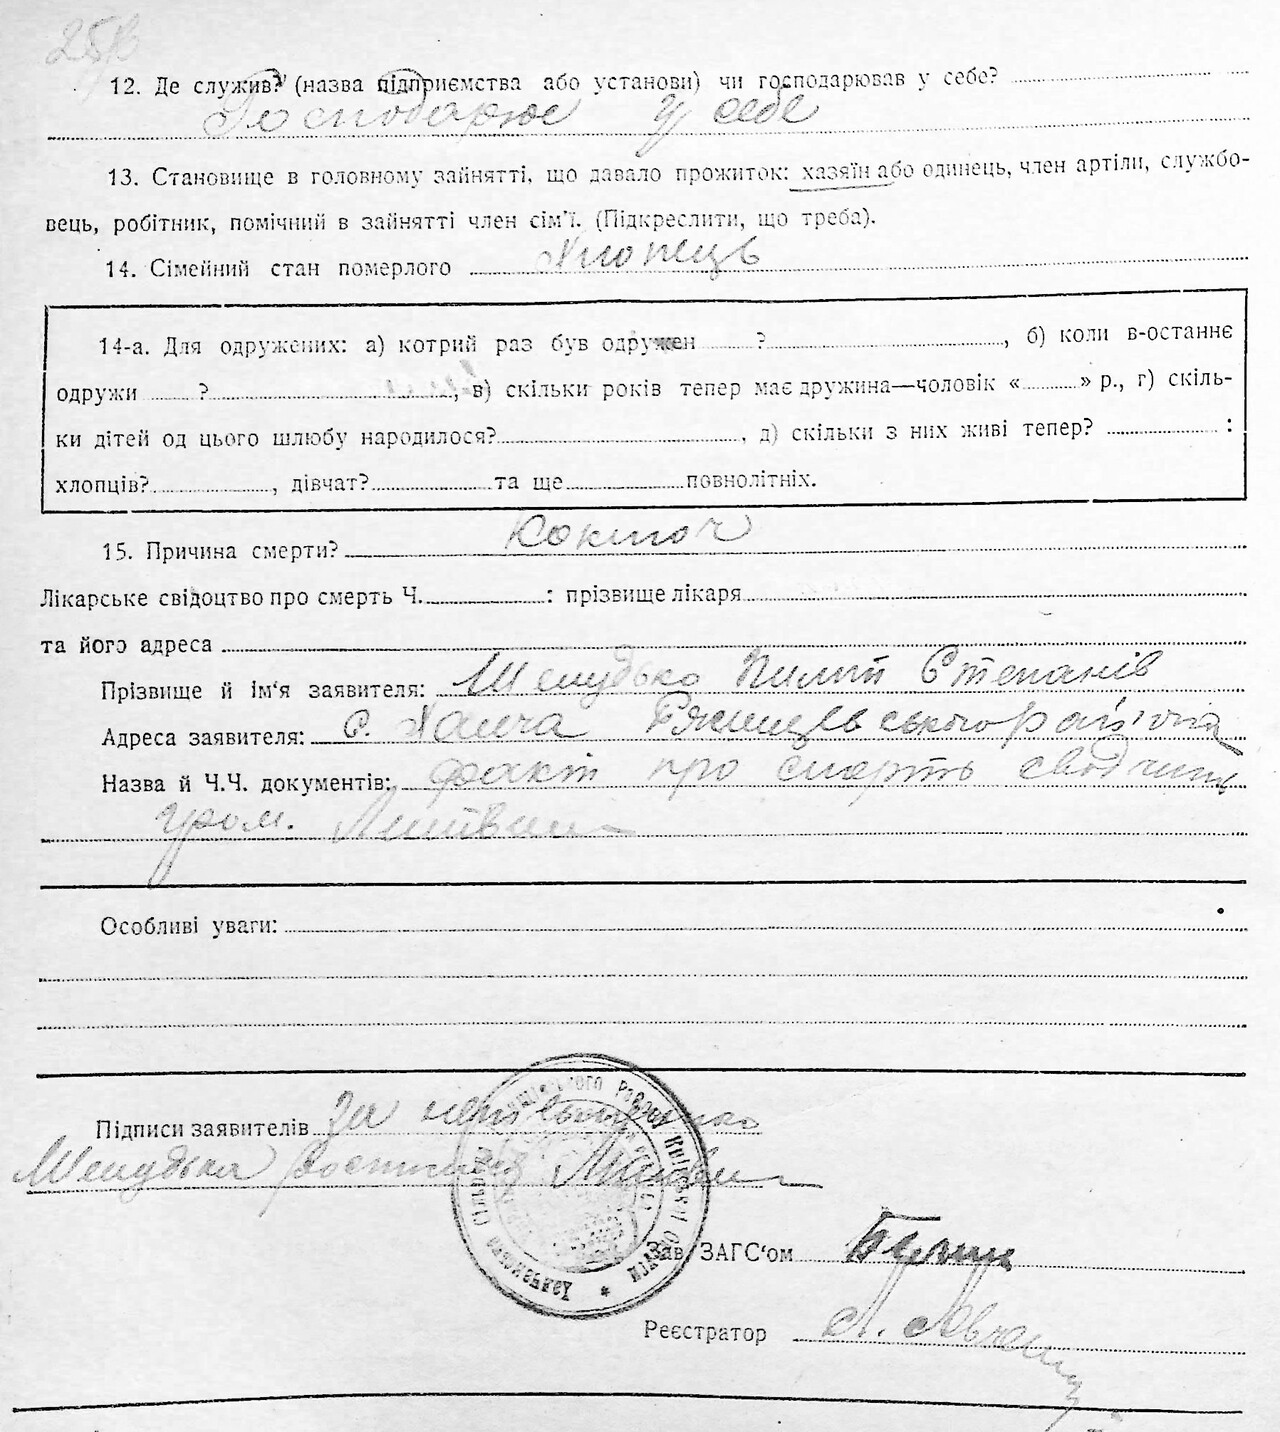 12. Де служив? (назва підприємства або установи) чи господарював у себе?
Господарює у себе
13. Становище в головному зайнятті, що давало прожиток: хазяїн або одинець, член артіли, службо-
вець, робітник, помічний в зайнятті член сім'ї. (Підкреслити, що треба).
14. Сімейний стан померлого Хлопець
14-а. Для одружених: а) котрий раз був одружен ? , б) коли в-останнє
одружи ? , в) скільки років тепер має дружина—чоловік « » р., г) скіль-
ки дітей од цього шлюбу народилося? , д) скільки з них живі тепер? :
хлопців? , дівчат? та ще повнолітніх.
15. Причина смерти? Коклюш
Лікарське свідоцтво про смерть Ч. : прізвище лікаря
та його адреса
Прізвище й ім'я заявителя: Шелудько Пилип Степанів
Адреса заявителя: с. Халча
Назва й Ч.Ч. документів: факт про смерть свідчить
гром. Литвин
Особливі уваги:
Підписи заявителів За неписьменого
Шелудька росписався Литвин
Зав. ЗАГС'ом
Реєстратор